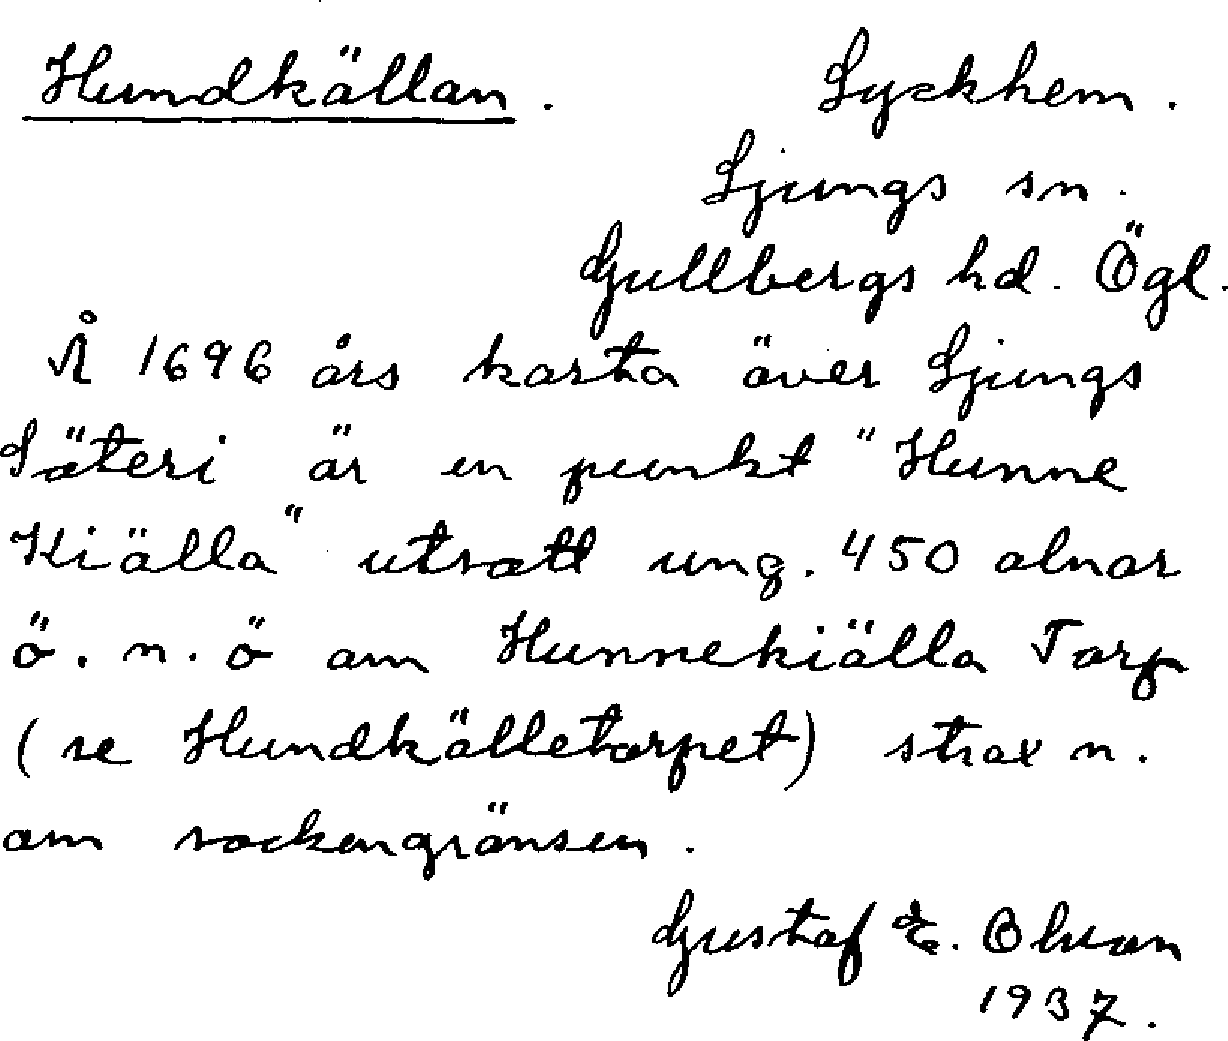 Hundkällan. Lyckhem.
Ljungs sn.
Gullbergs hd. Ögl.
Å 1696 års karta över Ljungs
Säteri är en punkt "Hunne
Kiälla" utsatt ung. 450 alnar
ö. n. ö om Hunnekiälla Torp
(se Hundkälletorpet) strax n.
om sockengränsen.
Gustaf E. Olsson
1937.